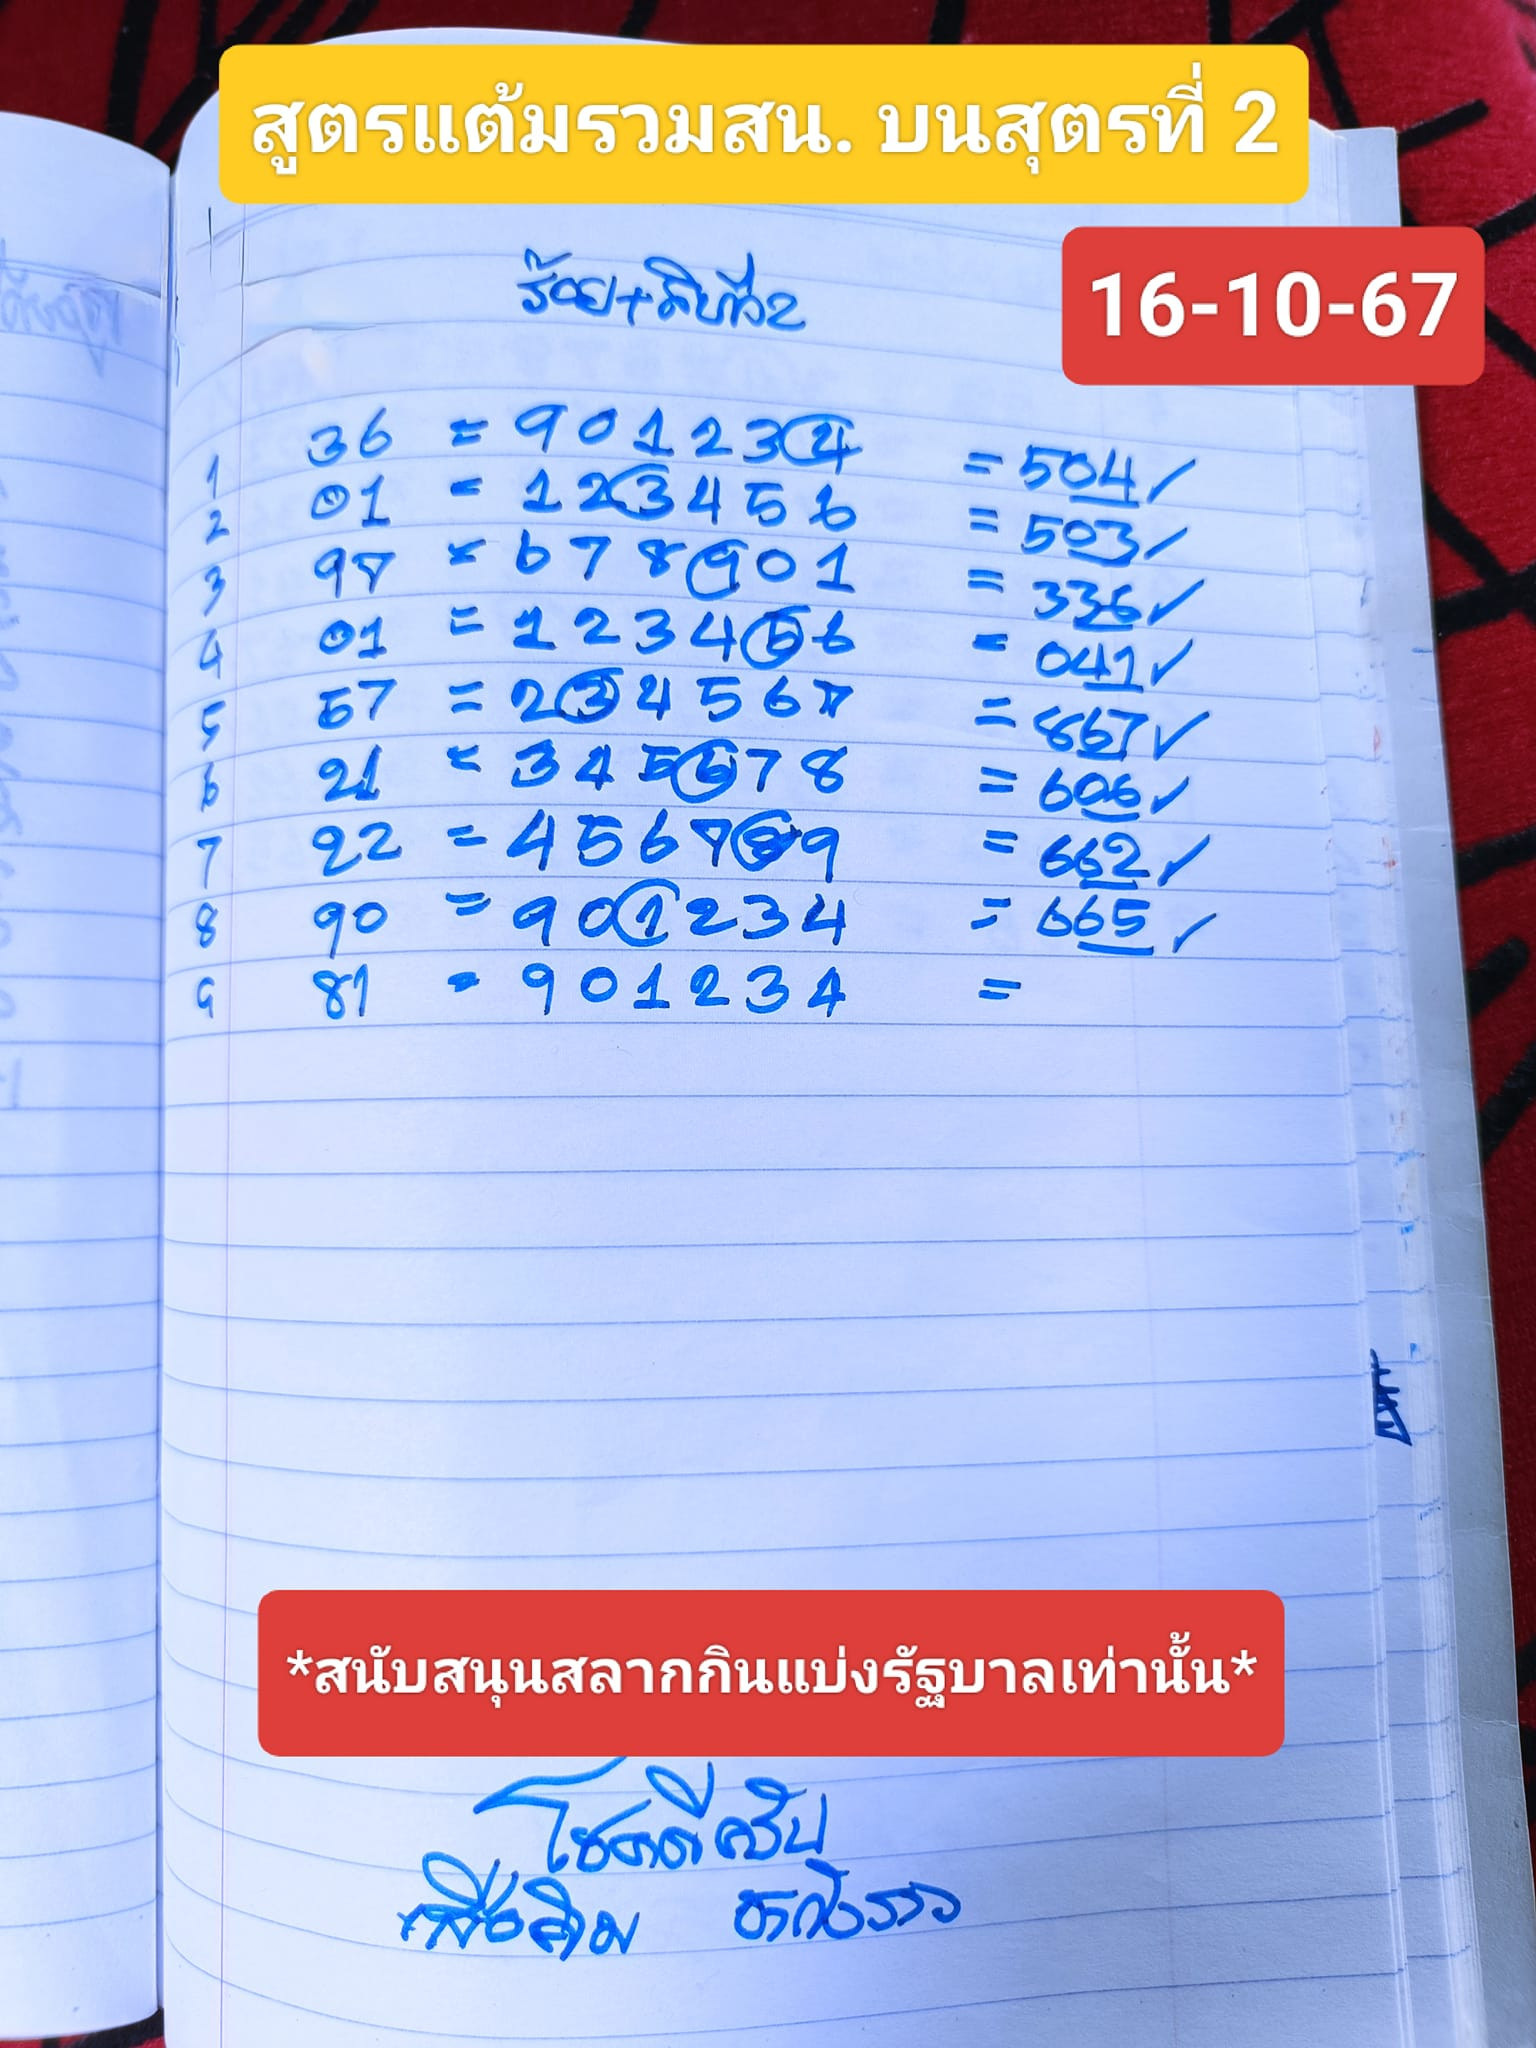 สูตรแต้มรวมสน. บนสุตรที่ 2
16-10-67
ร้อย+สิบที่2
36 = 901234
1 01 = 123456 = 504✓
2 97 = 678901 = 503✓
3 01 = 123456 = 336✓
4 57 = 234567 = 041✓
5 21 = 345678 = 867✓
6 22 = 456789 = 606✓
7 90 = 901234 = 662✓
8 81 = 901234 = 665✓
9 =
*สนับสนุนสลากกินแบ่งรัฐบาลเท่านั้น*
โชคดีครับ